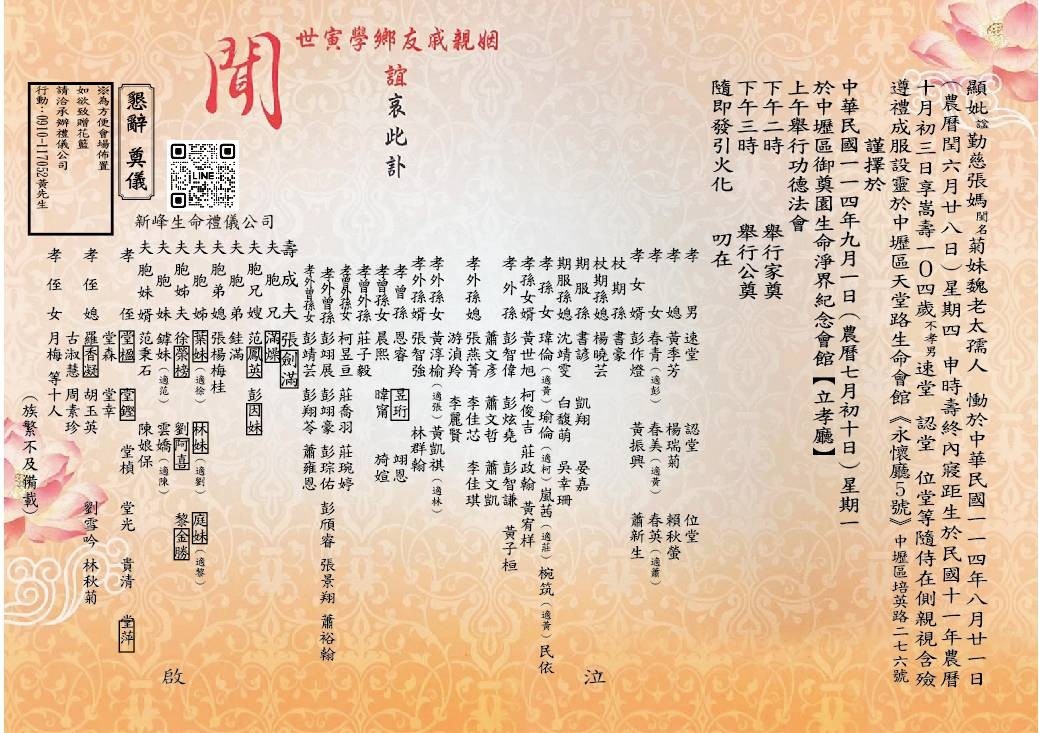 顯妣諡勤慈張媽閨名菊妹魏老太孺人　慟於中華民國一一四年八月廿一日
(農曆閏六月廿八日)星期四　申時壽終內寢距生於民國十一年農曆
十月初三日享嵩壽一0四歲不孝男速堂　認堂　位堂等隨侍在側親視含殮
遵禮成服設靈於中壢區天堂路生命會館《永懷廳5號》中壢區培英路二七六號
謹擇於
中華民國一一四年九月一日(農曆七月初十日)星期一
於中壢區御奠園生命淨界紀念會館【立孝廳】
上午舉行功德法會
下午二時　舉行家奠
下午三時　舉行公奠
隨即發引火化　叨在
姻親戚友鄉學寅世
誼哀此訃
聞
孝男　速堂　認堂　位堂
孝媳　黃季芳　楊瑞菊　賴秋螢
孝女　春青(適彭)　春美(適黃)　春英(適蕭)
孝女婿　彭作燈　黃振興　蕭新生
杖期孫　書豪
杖期孫媳　楊曉芸
期服孫　書諺　凱翔　晏嘉
期服孫媳　沈靖雯　白馥萌　吳幸珊
孝孫女　瑋倫(適黃)　瑜倫(適柯)　嵐茜(適莊)　椀筑(適黃)　民依
孝孫女婿　黃世旭　柯俊吉　莊政翰　黃宥样
孝外孫　彭智偉　彭炫堯　彭智謙　黃子桓
蕭文彥　蕭文哲　蕭文凱
孝外孫媳　張燕菁　李佳芯　李佳琪
游湞羚　李麗賢
孝外孫女　黃淳榆(適張)　黃凱祺(適林)
孝外孫婿　張智強　林群翰
孝曾孫　恩睿　昱珩　翊恩
孝曾孫女　晨熙　暐甯　掎媗
孝曾外孫　莊子毅
孝曾外孫女　柯昱亘　莊喬羽　莊琬婷
孝外曾孫　彭翊展　彭翊豪　彭琮佑　彭頎睿　張景翔　蕭裕翰
孝外曾孫女　彭靖芸　彭翔芩　蕭雍恩
壽成夫　張劍滿
夫胞兄　滿燥
夫胞嫂　范鳳英　彭因妹
夫胞弟　銈滿
夫胞弟媳　張楊梅桂
夫胞姊　葉妹(適徐)　林妹(適劉)　庭妹(適黎)
夫胞姊夫　徐榮榜　劉阿喜　黎金勝
夫胞妹　鍏妹(適范)　雲嬌(適陳)
夫胞妹婿　范秉石　陳娘保
孝侄　堂楹　堂鏗　堂楨　堂光　貴清　堂萍
堂森　堂幸
孝侄媳　羅香凝　胡玉英　劉雪吟　林秋菊
古淑慧　周素珍
孝侄女　月梅　等十人
(族繁不及備載)
泣
啟
新峰生命禮儀公司
LINE
懇辭　奠儀
※為方便會場佈置
如欲致贈花籃
請洽承辦禮儀公司
行動:0910-117052黃先生